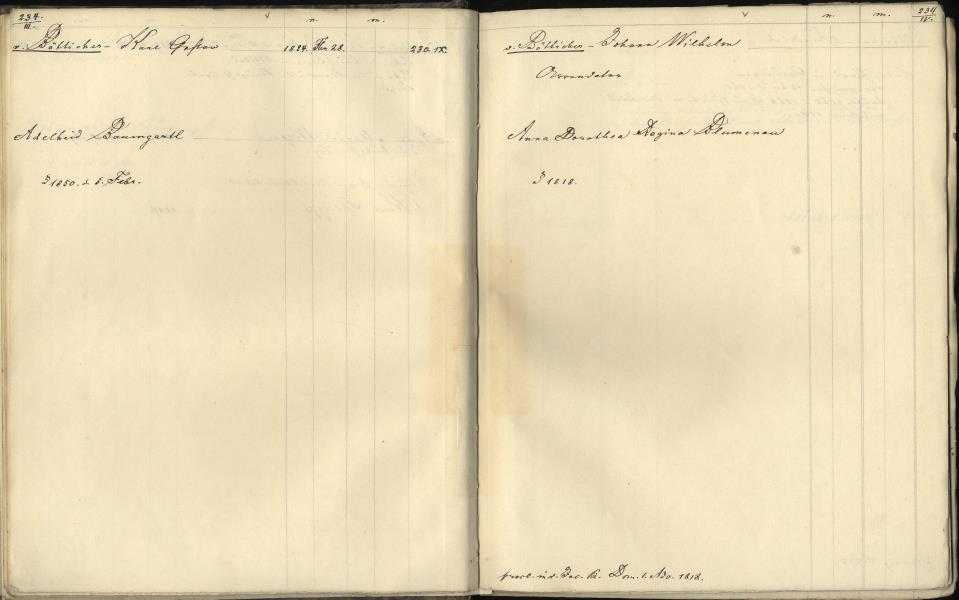 234.
III.
n.
m.
v. Bötticher - Karl Gustav 1824. Febr 28. 230. IX.
Adelheid Baumgartl
1850. d. 6. Febr.
234
IV.
n.
m.
v. Bötticher - Johann Wilhelm
Arrendator
Anna Dorothea Regina Blumenau
1818.
procl. in d. Jac. K. Dom. 1. Adv. 1818.